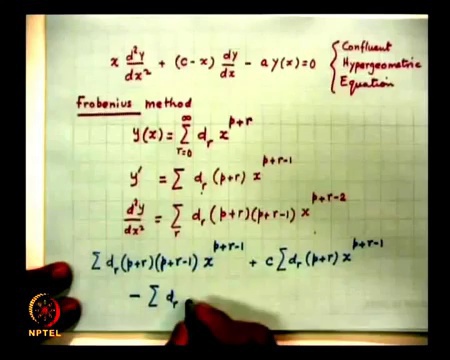 x d²y/dx² + (c-x) dy/dx - a y(x) = 0 { Confluent Hypergeometric Equation
Frobenius method
y(x) = ∑_{r=0}^{∞} d_r x^{p+r}
y' = ∑ d_r (p+r) x^{p+r-1}
d²y/dx² = ∑_r d_r (p+r)(p+r-1) x^{p+r-2}
∑ d_r (p+r)(p+r-1) x^{p+r-1} + c ∑ d_r (p+r) x^{p+r-1}
- ∑ d_r
NPTEL